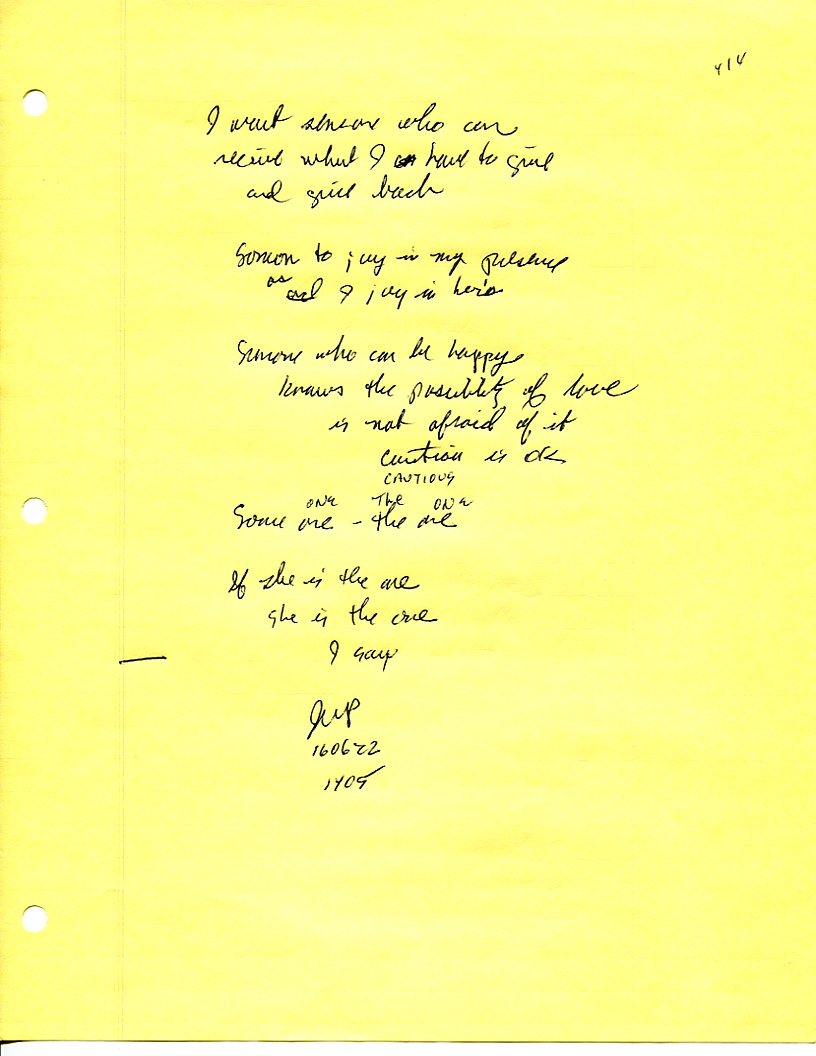 414
I want someone who can
receive what I have to give
and give back
Someone to joy in my presence
as
and I joy in hers
Someone who can be happy
knows the possibility of love
is not afraid of it
caution is ok
CAUTIOUS
ONE THE ONE
Some one - the one
If she is the one
she is the one
I say
1405